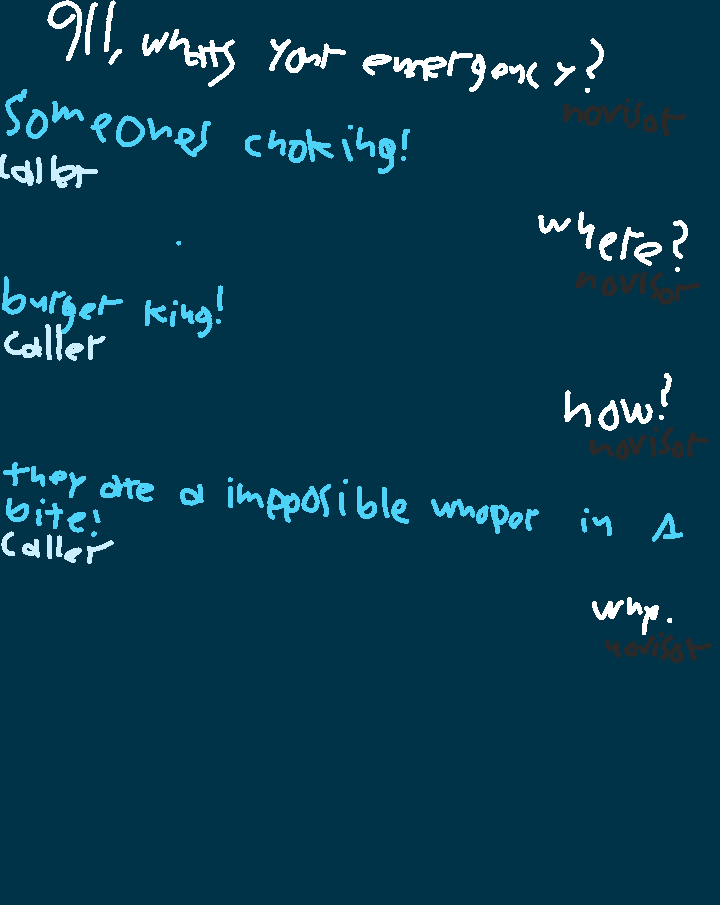 911, whats your emergency?
novisor
Someones choking!
Caller
where?
novisor
burger king!
Caller
how?
novisor
they ate a impposible whopor in 1
bite!
Caller
why.
novisor